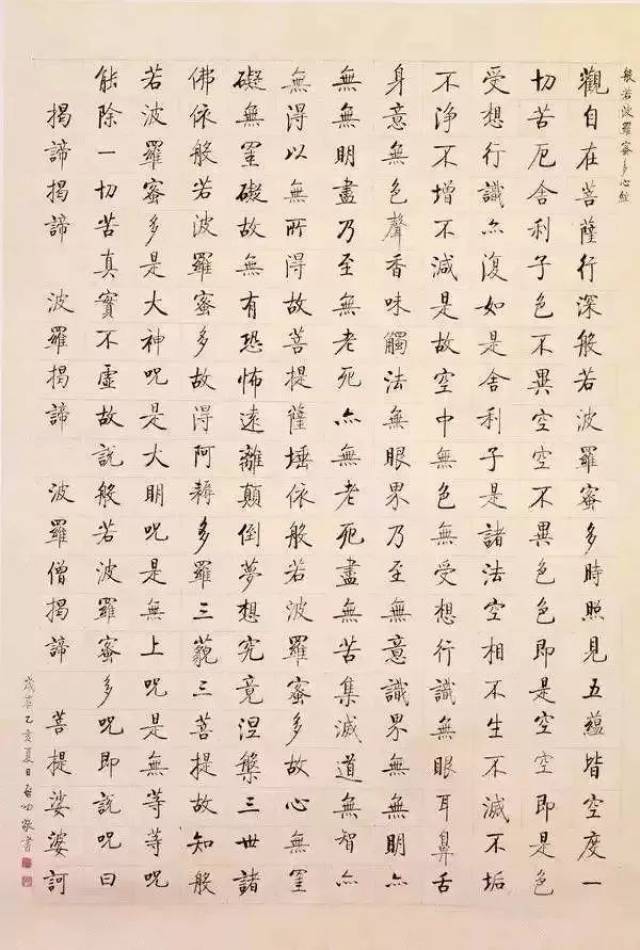 般若波羅蜜多心經
觀自在菩薩行深般若波羅蜜多時照見五蘊皆空度一
切苦厄舍利子色不異空空不異色色即是空空即是色
受想行識亦復如是舍利子是諸法空相不生不滅不垢
不淨不增不減是故空中無色無受想行識無眼耳鼻舌
身意無色聲香味觸法無眼界乃至無意識界無無明亦
無無明盡乃至無老死亦無老死盡無苦集滅道無智亦
無得以無所得故菩提薩埵依般若波羅蜜多故心無罣
礙無罣礙故無有恐怖遠離顛倒夢想究竟涅槃三世諸
佛依般若波羅蜜多故得阿耨多羅三藐三菩提故知般
若波羅蜜多是大神咒是大明咒是無上咒是無等等咒
能除一切苦真實不虛故說般若波羅蜜多咒即說咒曰
揭諦揭諦 波羅揭諦 波羅僧揭諦 菩提娑婆訶
歲 乙亥夏日啟功敬書